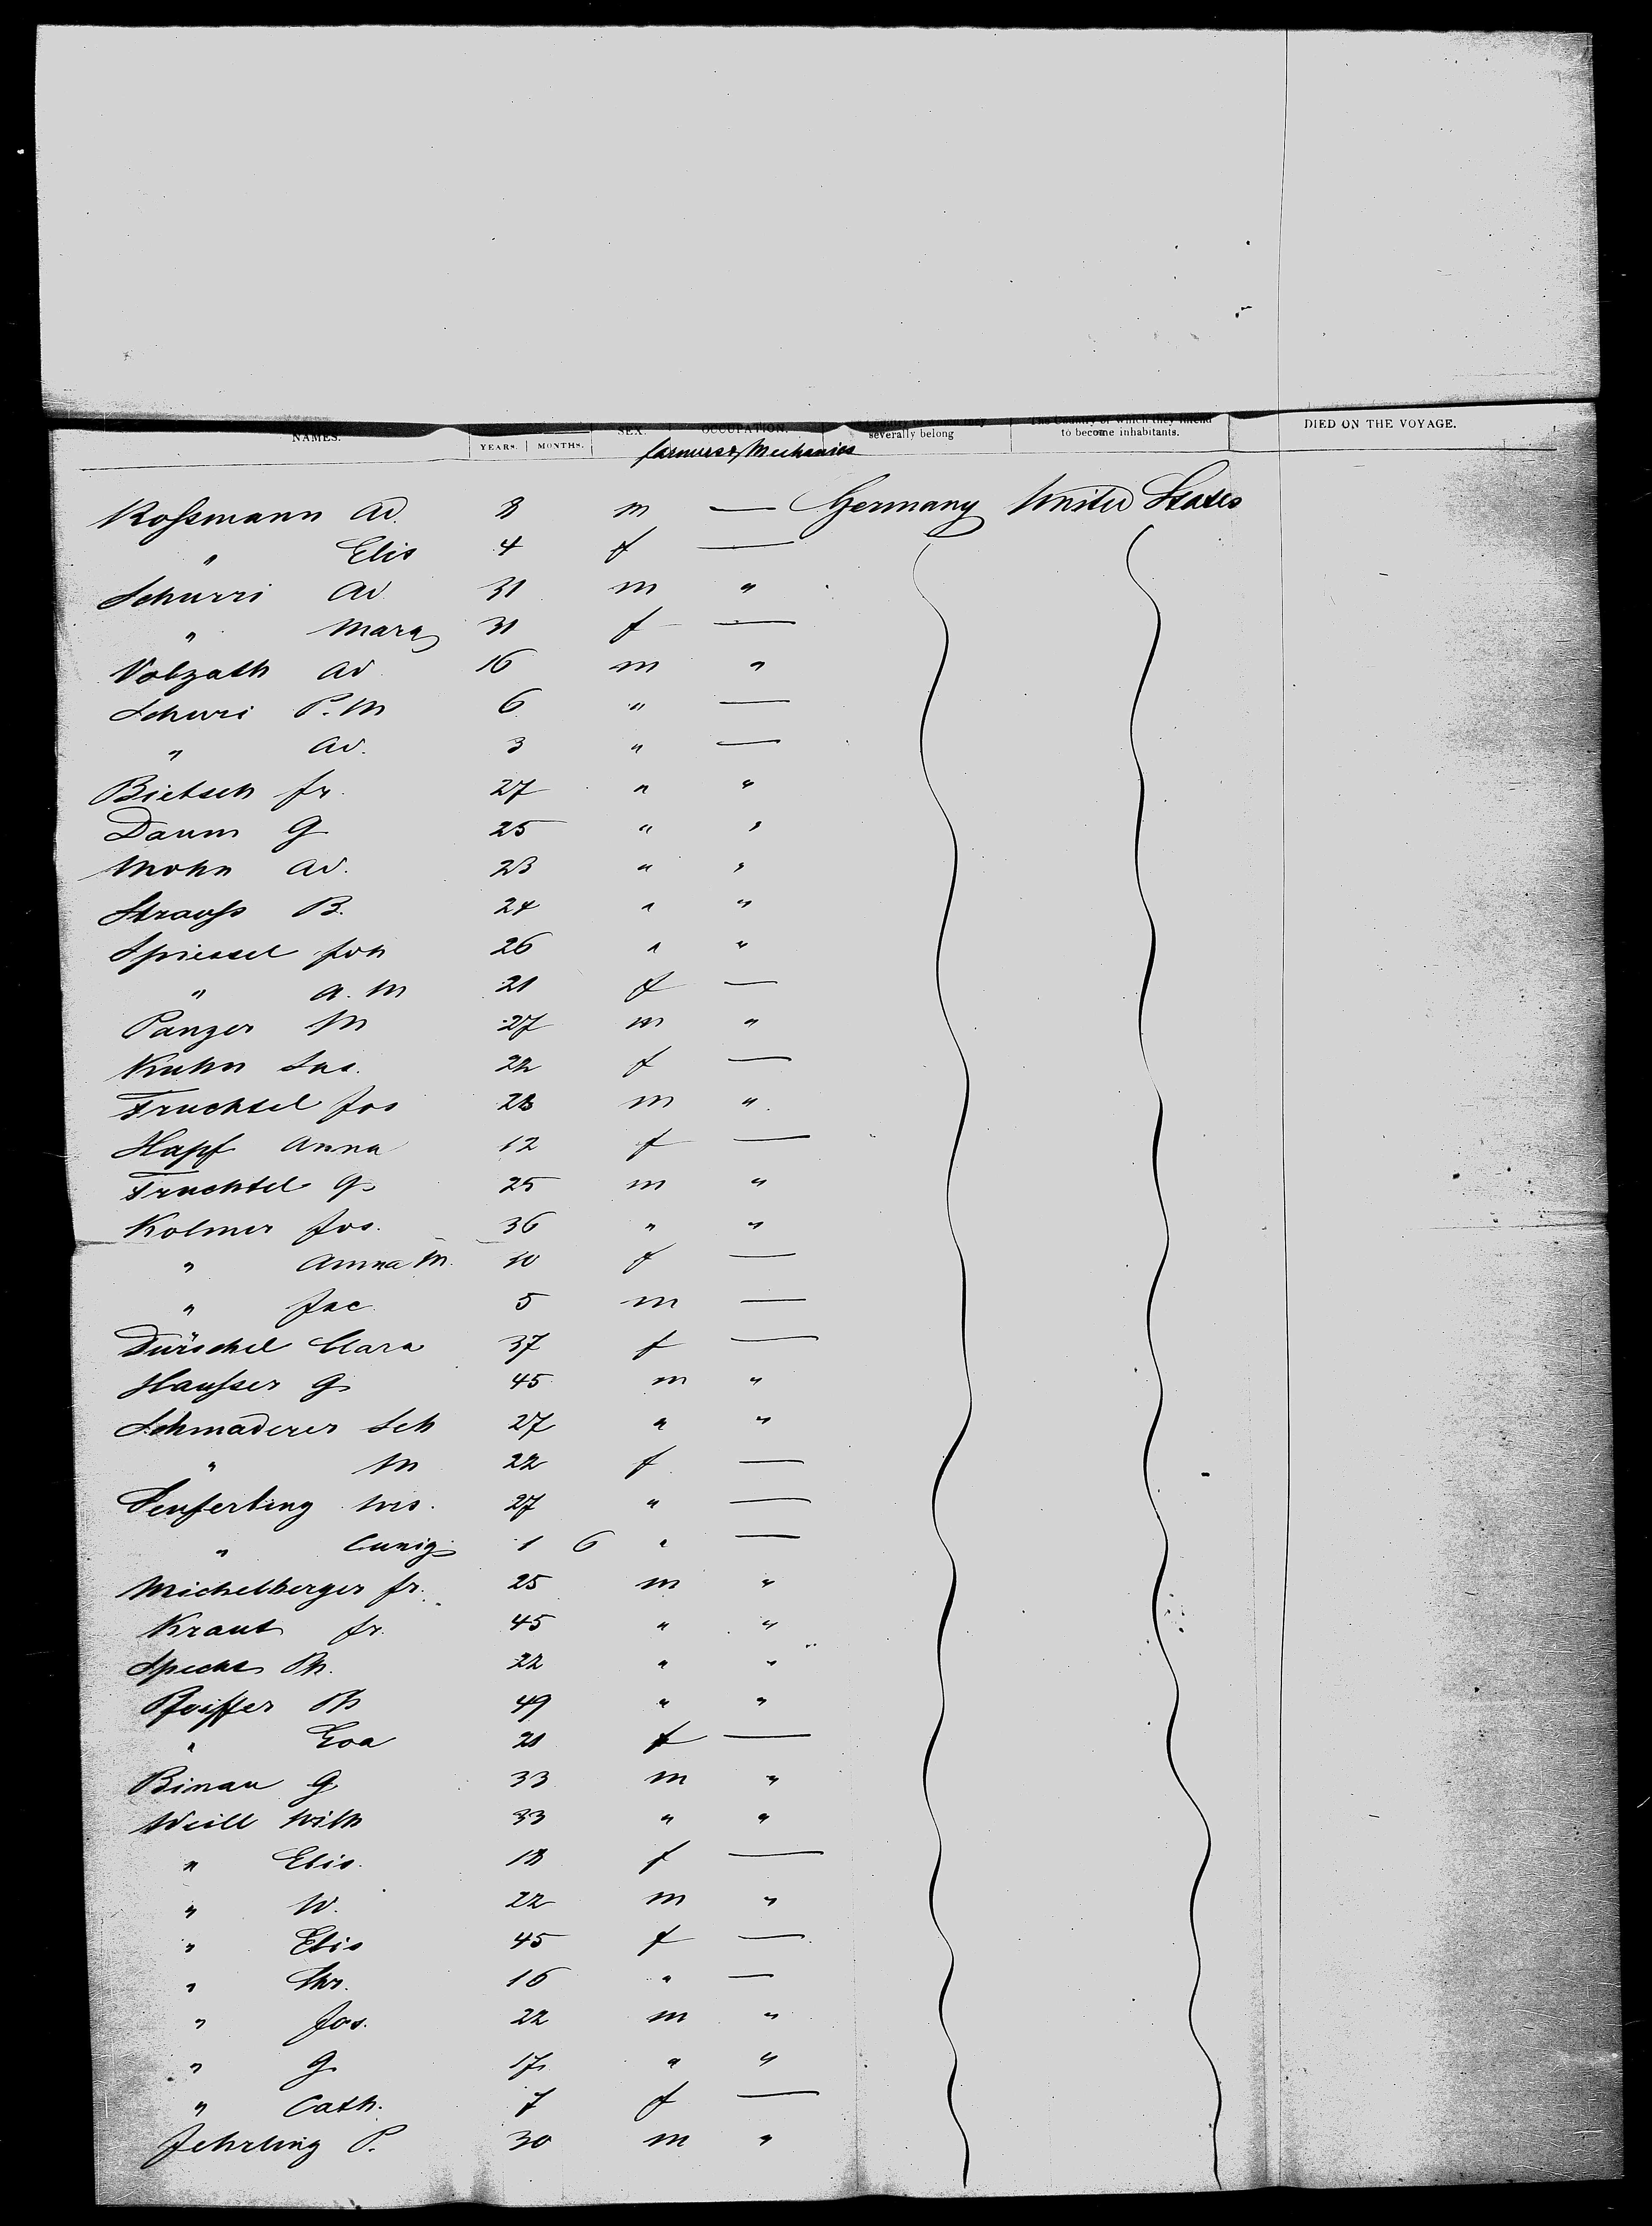 NAMES. YEARS. MONTHS. SEX. OCCUPATION. Country to which they severally belong The Country of which they intend to become inhabitants. DIED ON THE VOYAGE.
farmers & Mechanics
Roſsmann Ad. 8 m — Germany United States
" Elis 4 f —
Schurri Ad 31 m "
" Marg 31 f —
Volzath Ad 16 m "
Schuri P. M 6 " —
" Ad. 3 " —
Bietsch fr. 27 " "
Daum G 25 " "
Mohn Ad. 23 " "
Strauſs B. 24 " "
Spiessel Joh 26 " "
" A. M 21 f —
Panzer M 27 m "
Kuhn Sus. 22 f —
Fruchtel Jos 28 m "
Hapf Anna 12 f —
Fruchtel G 25 m "
Kolmer Jos. 36 " "
" Anna M. 10 f —
" Jac 5 m —
Dürschel Clara 37 f —
Hauſser G 45 m "
Schmaderer Seb 27 " "
" M 22 f —
Senferling 27 " —
" Cunig 1 6 " —
Michelberger fr. 25 m "
Kraut fr. 45 " "
Specht Ph. 22 " "
Pfeiffer Ph 49 " "
" Eva 21 f —
Binau G 33 m "
Weill Wilh 33 " "
" Elis. 18 f —
" W. 22 m "
" Elis 45 f —
" Chr. 16 " —
" Jos. 22 m "
" G 17 " "
" Cath. 7 f —
Jehrling P. 30 m "